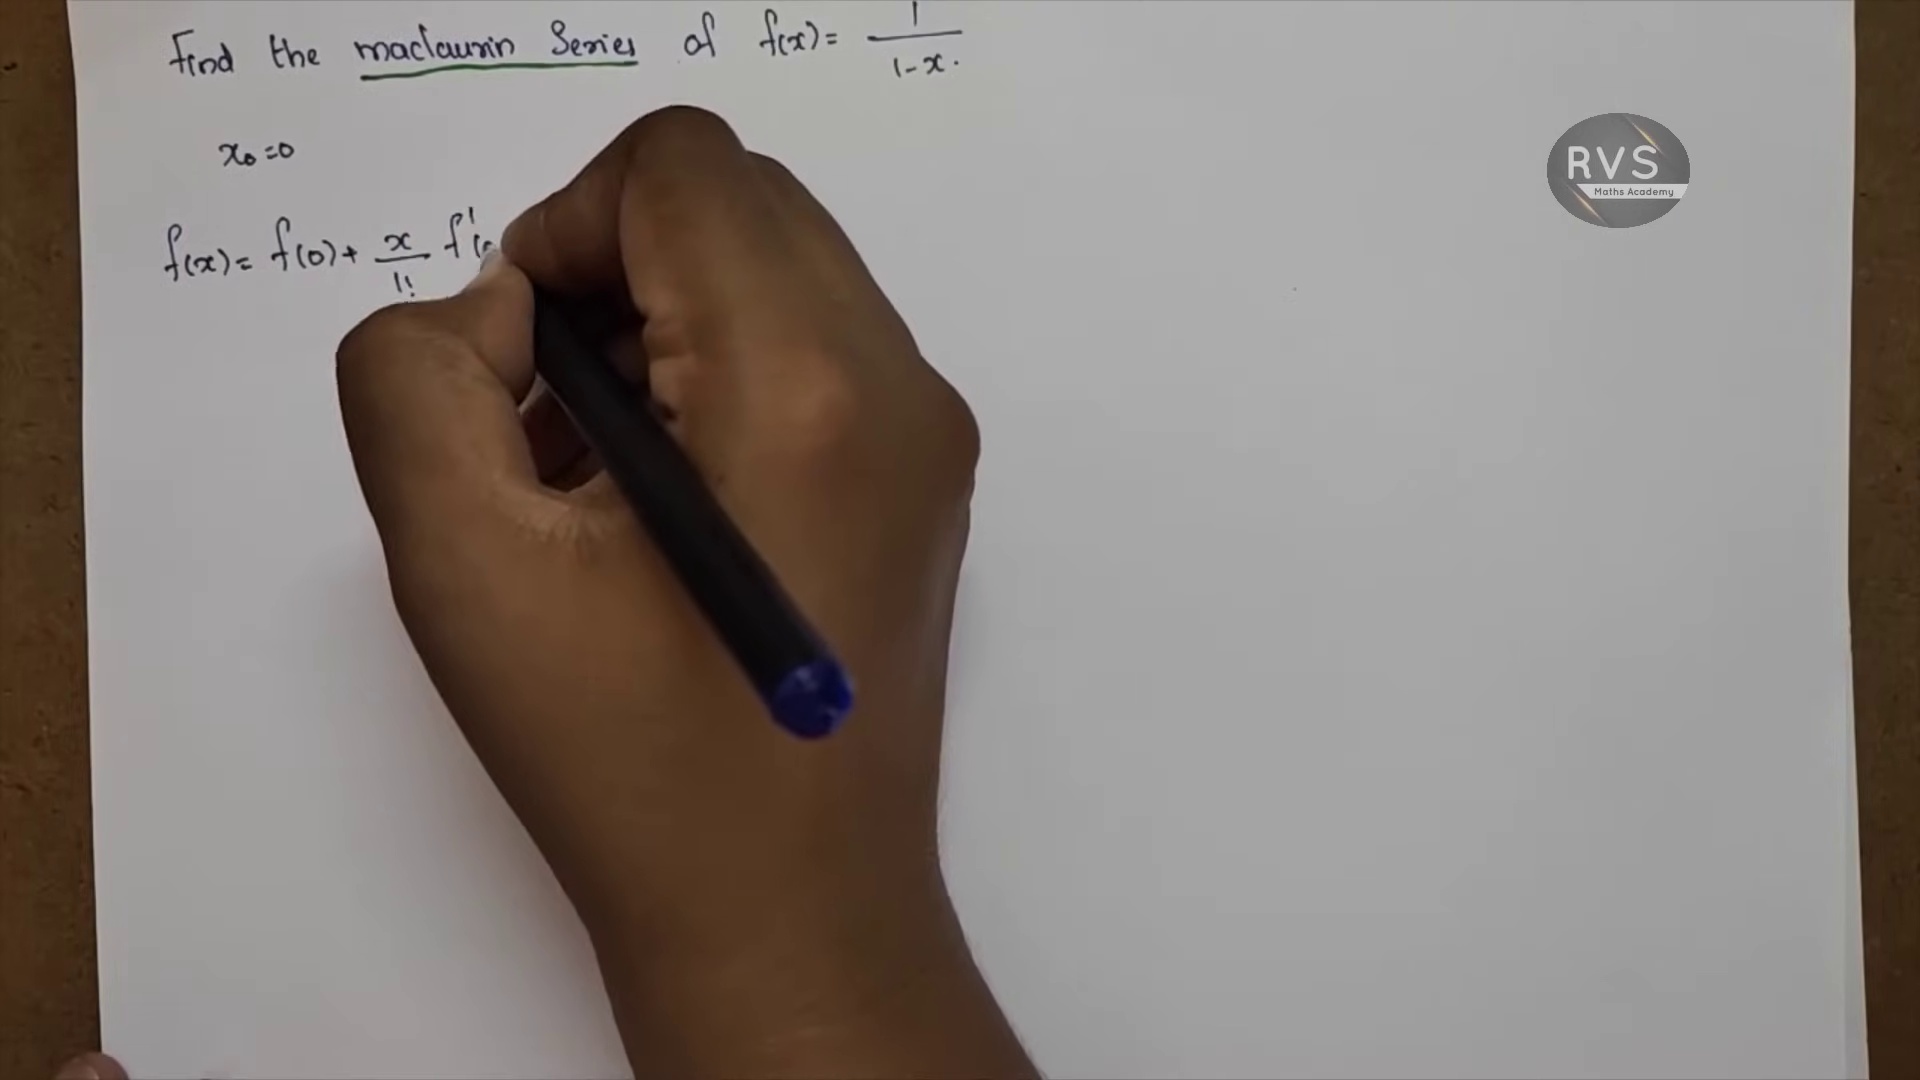 Find the maclaurin Series of f(x)= 1/1-x.
x₀=0
f(x)= f(0)+ x/1! f'(0
RVS
Maths Academy